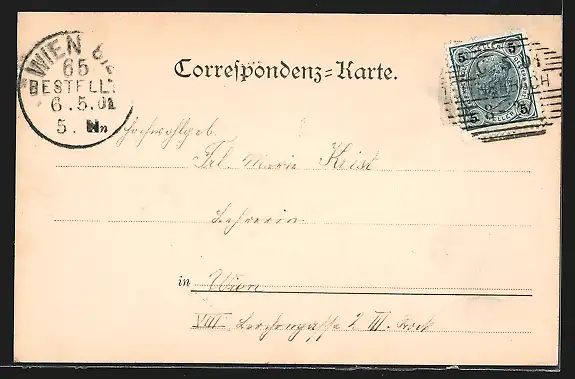 WIEN
65
BESTELLT
6.5.01
5. Nn
Correspondenz=Karte.
5 5
5 5
Hochwohlgeb.
Frl. Marie Krist
Lehrerin
in Wien
VIII Lerchengasse 2 III. Stock